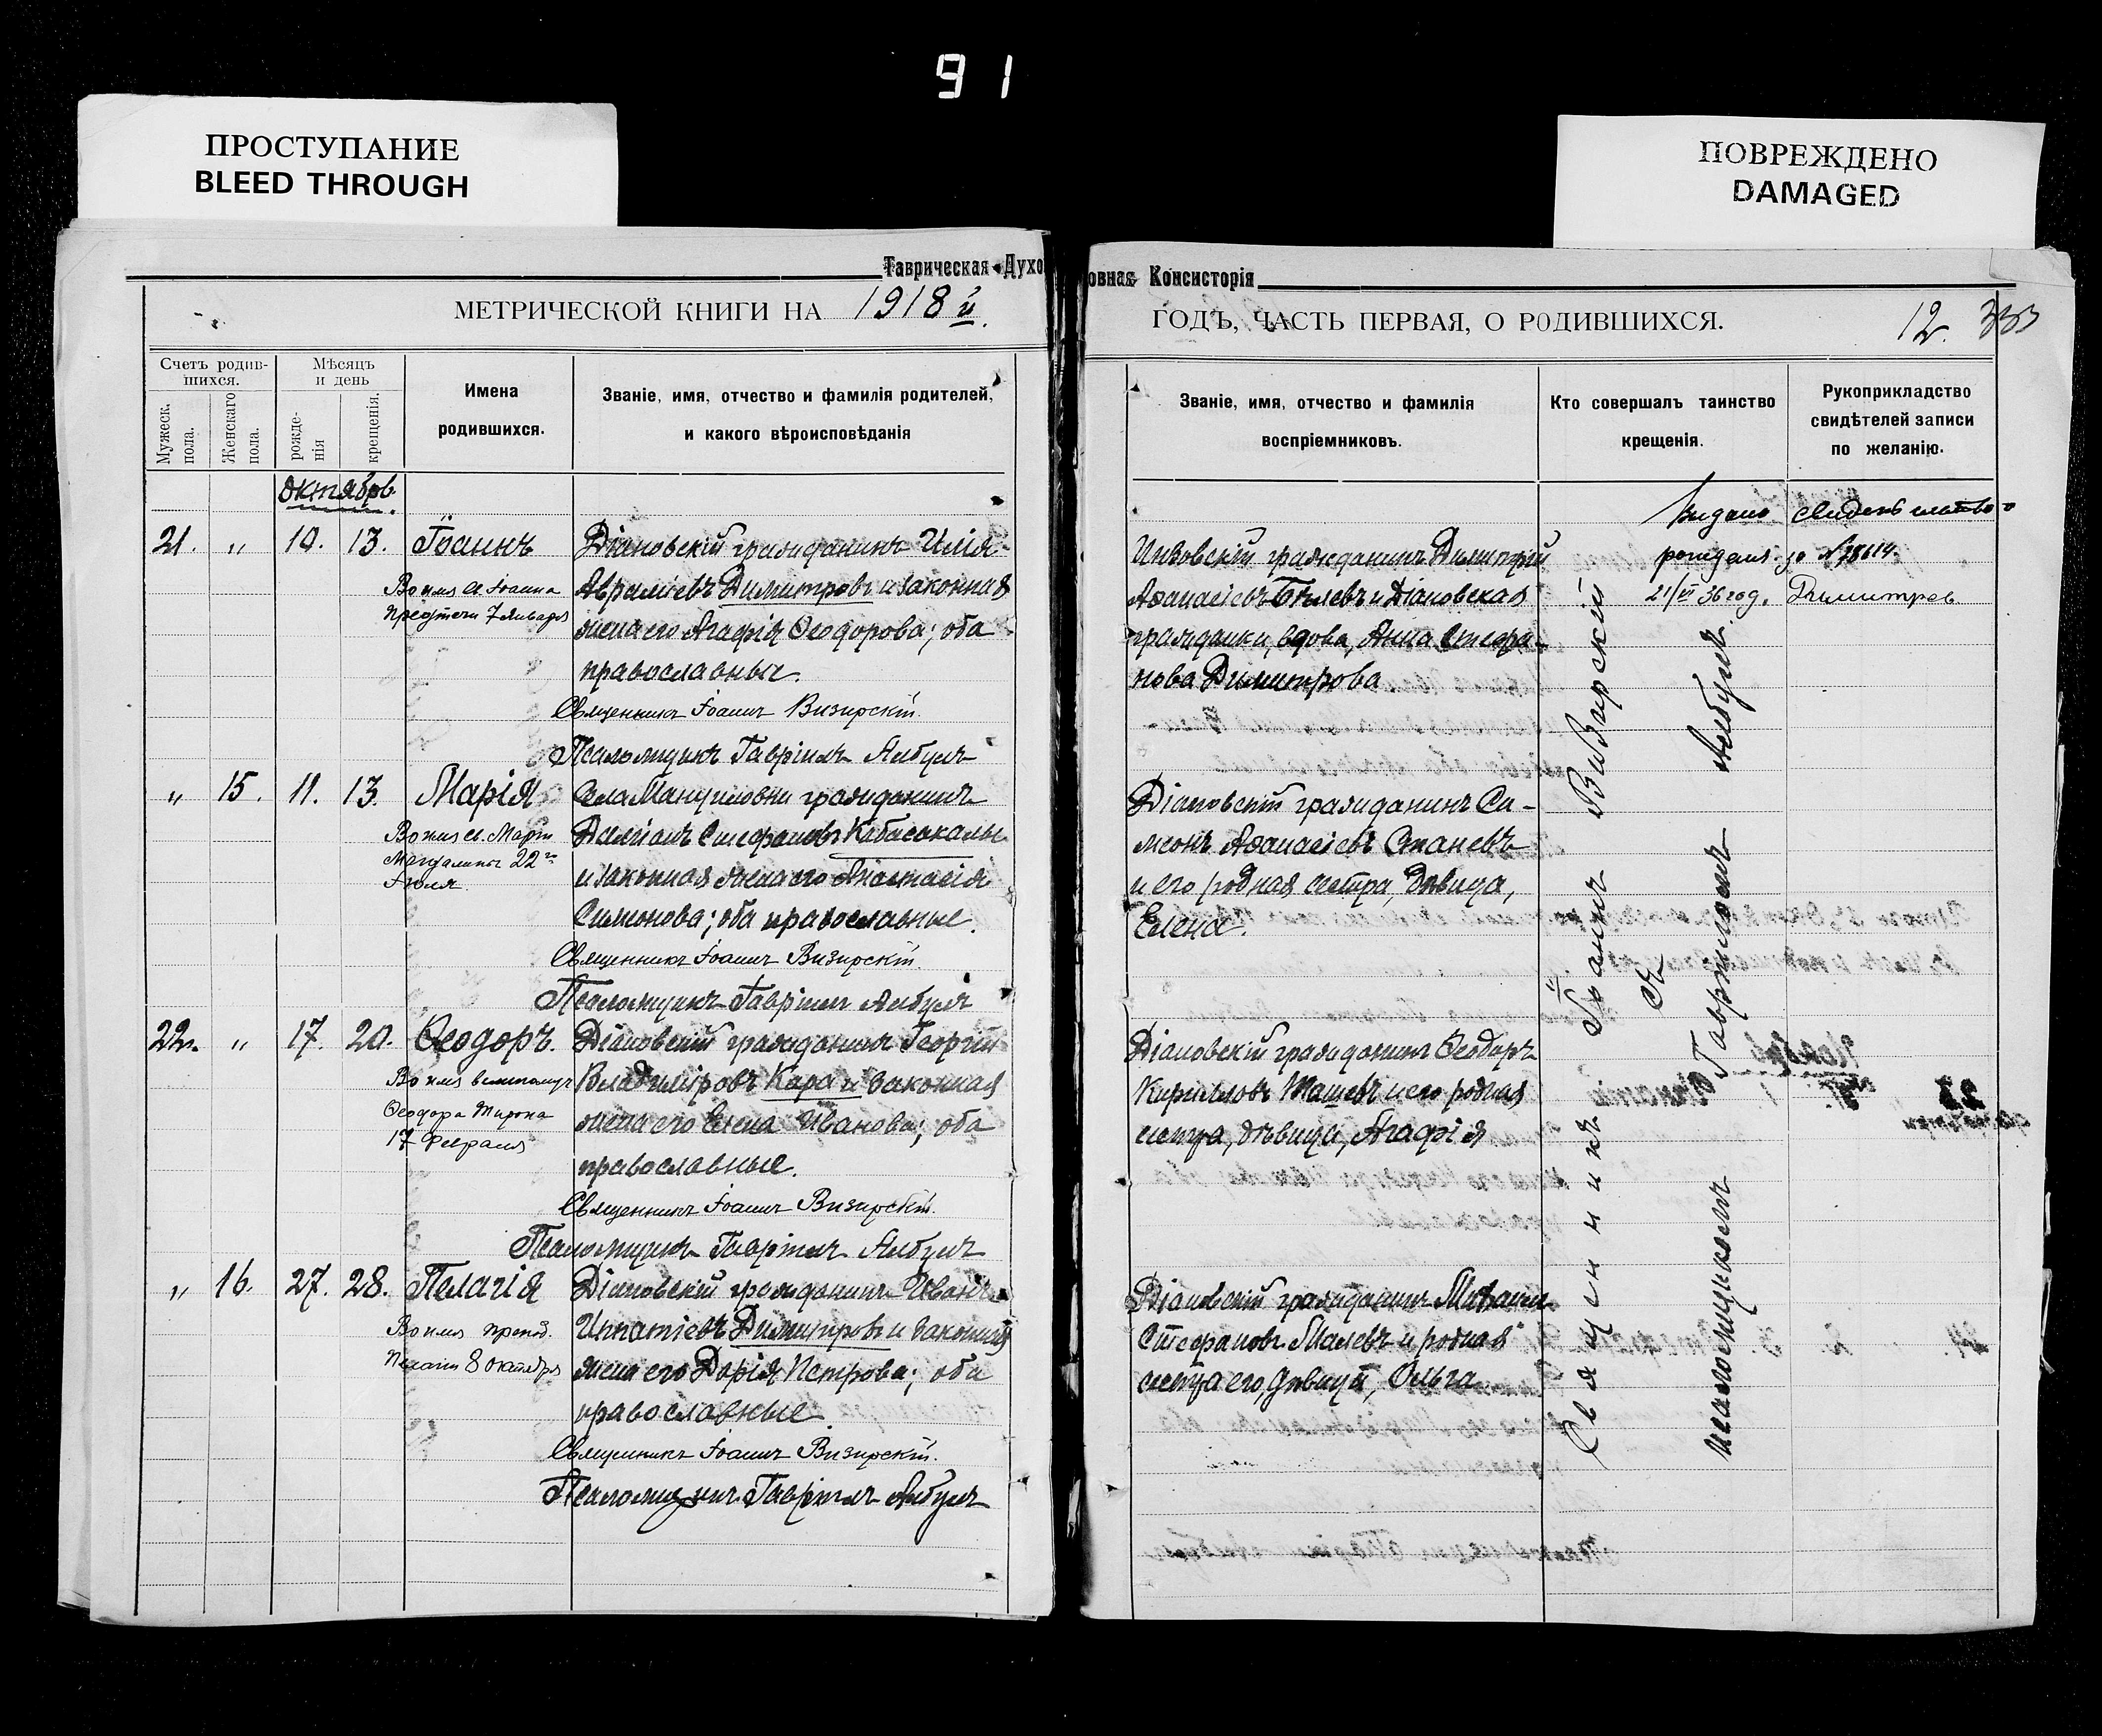 91
ПРОСТУПАНИЕ
BLEED THROUGH
ПОВРЕЖДЕНО
DAMAGED
Таврическая Духо
МЕТРИЧЕСКОЙ КНИГИ НА 1918 й.
Счетъ родив-
шихся.
Мужеск.
пола.
Женскаго
пола.
Мѣсяцъ
и день
рожде-
нія
крещенія.
Имена
родившихся.
Званіе, имя, отчество и фамилія родителей,
и какого вѣроисповѣданія
Октябрь.
21. „ 10. 13. Іоаннъ Діановскій гражданинъ Илія
Во имя Іоанна Аврамовъ Димитровъ и законная
Предтечи 7 Января жена его Агафія Ѳеодорова; оба
православные.
Священникъ Іоаннъ Визирскій.
Псаломщикъ Гавріилъ Албулъ
„ 15. 11. 13. Марія Села Мануиловки гражданинъ
Во имя св. Маріи Даміанъ Стефановъ
Магдалины 22го и законная жена его Анастасія
Іюля. Симонова; оба православные.
Священникъ Іоаннъ Визирскій.
Псаломщикъ Гавріилъ Албулъ
22. „ 17. 20. Ѳеодоръ. Діановскій гражданинъ Георгій
Во имя великомуч Владиміровъ Кара и законная
Ѳеодора Тирона жена его Елена Иванова; оба
17 Февраля православные.
Священникъ Іоаннъ Визирскій.
Псаломщикъ Гавріилъ Албулъ
„ 16. 27. 28. Пелагія Діановскій гражданинъ Иванъ
Во имя препод. Игнатіевъ Димитровъ и законная
Пелагіи 8 Октября жена его Дарія Петрова; оба
православные.
Священникъ Іоаннъ Визирскій.
Псаломщикъ Гавріилъ Албулъ
овная Консисторія
ГОДЪ, ЧАСТЬ ПЕРВАЯ, О РОДИВШИХСЯ. 12. 333
Званіе, имя, отчество и фамилія
воспріемниковъ.
Кто совершалъ таинство
крещенія.
Рукоприкладство
свидѣтелей записи
по желанію.
Видано свидетельство о
рождении за № 28614.
21/VI 36 год. Димитрев
гражданинъ Димитрій
Аѳанасіевъ Бѣлевъ и Діановская
гражданка, вдова, Анна Стефа-
нова Димитрова
Діановскій гражданинъ Си-
меонъ Аѳанасіевъ Станевъ
и его родная сестра, дѣвица,
Елена.
Діановскій гражданинъ Ѳеодоръ
Кирилловъ Ташевъ и его родная
сестра, дѣвица, Агафія
Діановскій гражданинъ Михаилъ
Стефановъ Малевъ и родная
сестра его, дѣвица, Ольга
Священникъ Іоаннъ Визирскій
съ
псаломщикомъ Гавріиломъ Албулъ.